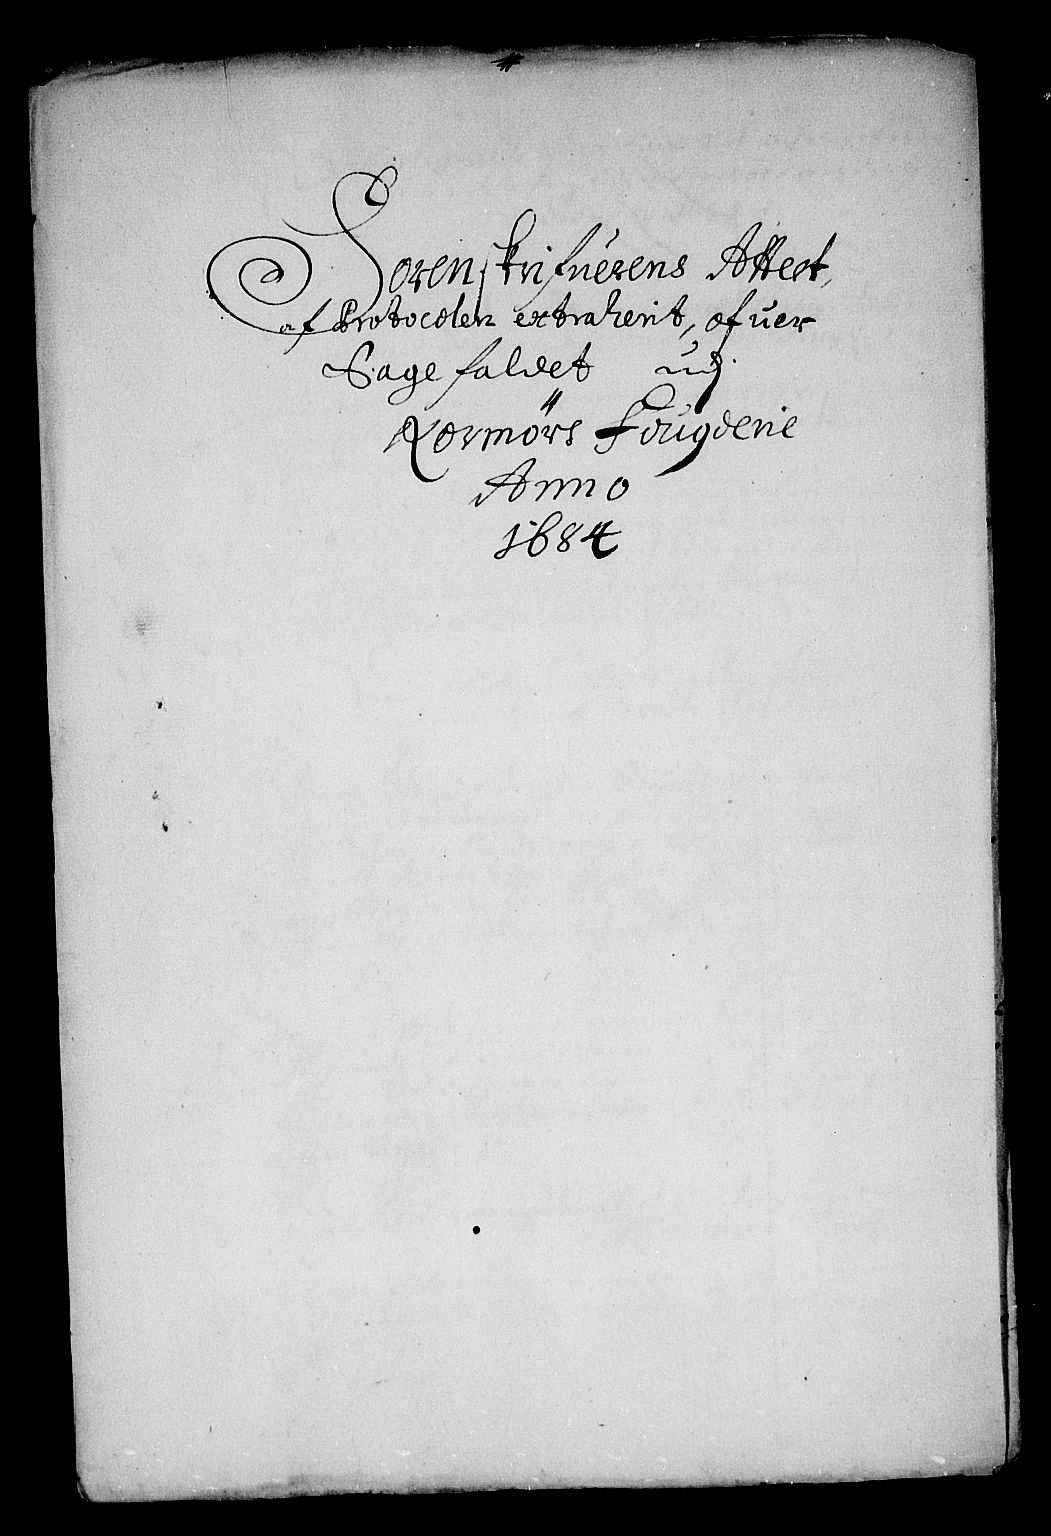 Sorenskrifuerens Attest,
af Protocolen extraherit, ofuer
Sagefaldet udj
Rormörs Fougderie
Anno
1684